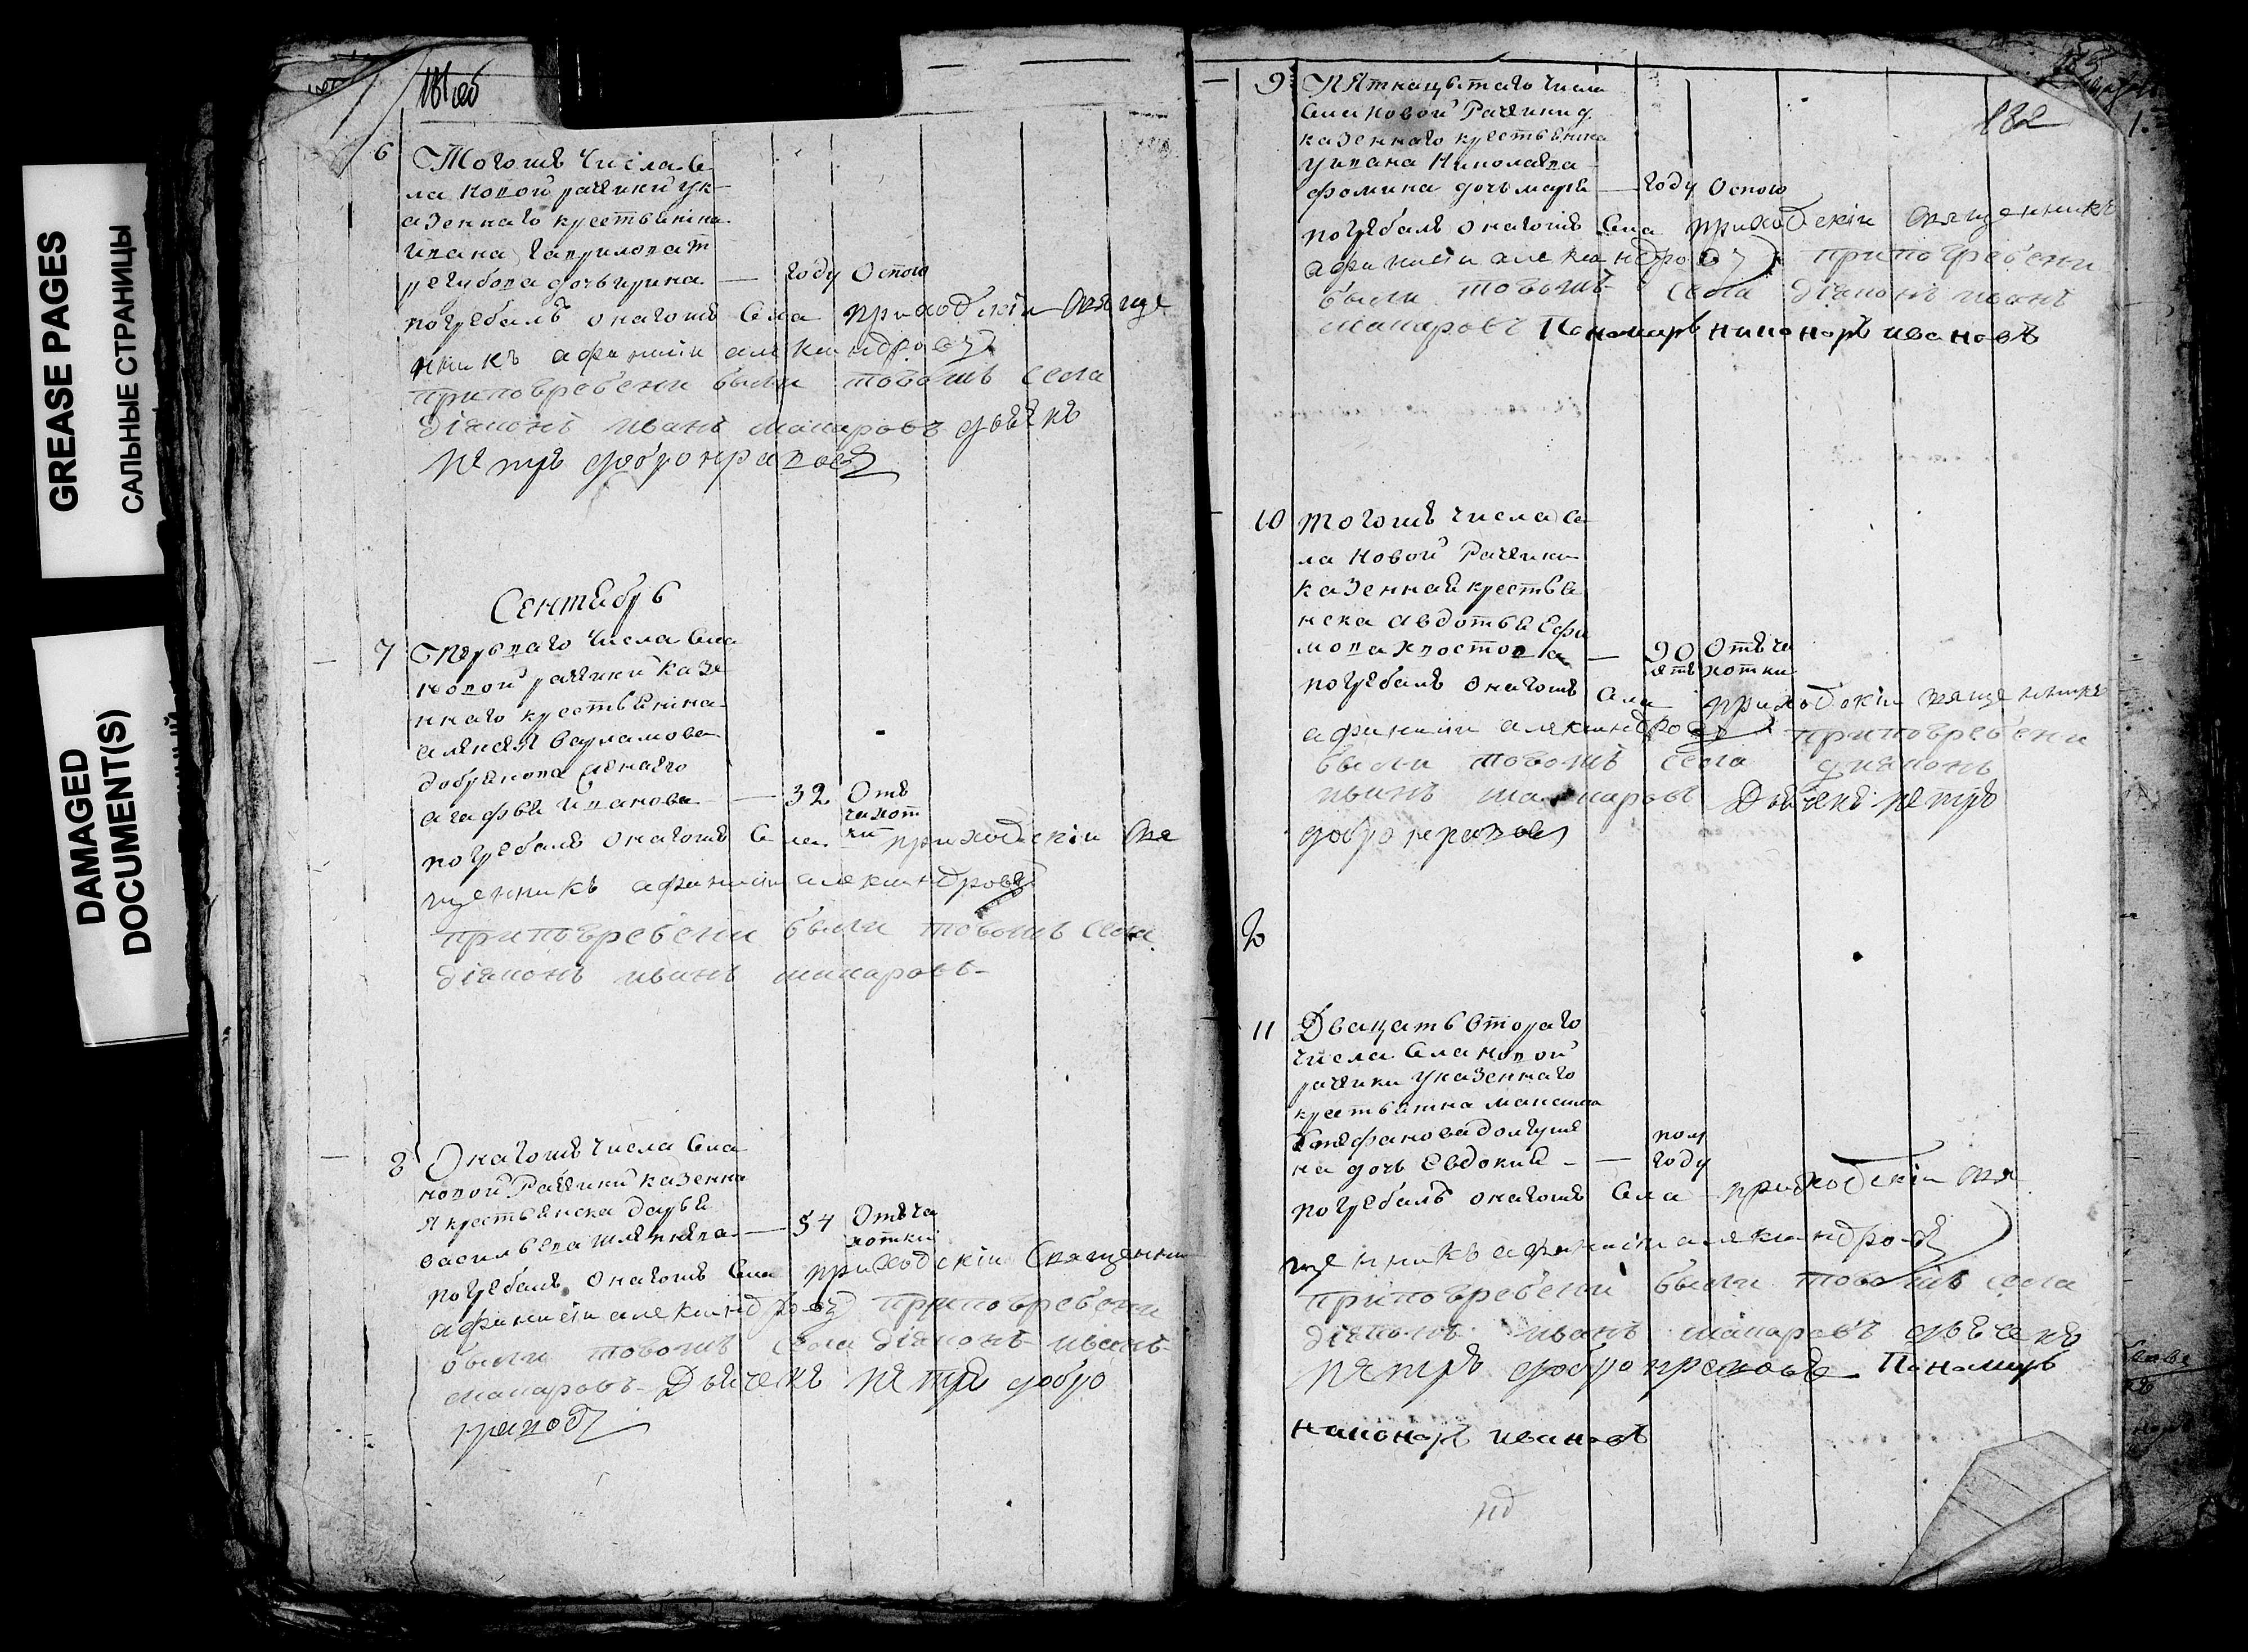 GREASE PAGES
САЛЬНЫЕ СТРАНИЦЫ
DAMAGED
DOCUMENT(S)
181 об
6 Тогожъ числа се
ла Новой рачейки ук
азеннаго крестьянина
ивана гаврилова т
регубова дочь ирина — году Оспою
погребалъ онагожъ села приходскiи свяще
нникъ афинисiи александровъ
припогребени были тогожъ села
дiяконъ иванъ макаровъ дьячекъ
петръ добронравовъ
Сентябрь
7 Перваго числа села
новой рачейки казе
ннаго крестьянина
алексея варламова
добрякова жена его
агафья иванова — 32 Отъ
чахот
ки
погребалъ онагожъ села приходскiи свя
щенникъ афинисiи александровъ
припогребени были тогожъ села
дiяконъ иванъ макаровъ
8 Онагожъ числа села
новой Рачейки казенна
я крестьянска дарья
васильева — 54 Отъ ча
хотки
погребалъ онагожъ села приходскiи священни
афинисiи александровъ припогребени
были тогожъ села дiяконъ иванъ
макаровъ Дьячекъ петръ добро
нравовъ
132
9 Пятнацытаго числа
села Новой Рачейки у
казеннаго крестьянина
ивана Николаева
фомина дочь марья — году Оспою
погребалъ онагожъ села приходскiи священникъ
афинисiи александровъ припогребени
были тогожъ села дiяконъ иванъ
макаровъ Пономарь никоноръ ивановъ
10 Тогожъ числа се
ла Новой Рачейки
казенная крестья
нска авдотья ефи
мова хвостова — 90 Отъ ча
летъ хотки
погребалъ онагожъ села приходскiи священникъ
афинисiи александровъ припогребени
были тогожъ села дияконъ
иванъ макаровъ Дьячекъ петръ
добронравовъ
11 Двацать втораго
числа села новой
рачейки указеннаго
крестьянина максима
стефанова долгуше
на дочь Евдокия — пол
году
погребалъ онагожъ села приходскiи свя
щенникъ афинисiи александровъ
припогребени были тогожъ села
дiяконъ иванъ макаровъ дьячекъ
петръ добронравовъ Пономарь
никоноръ ивановъ